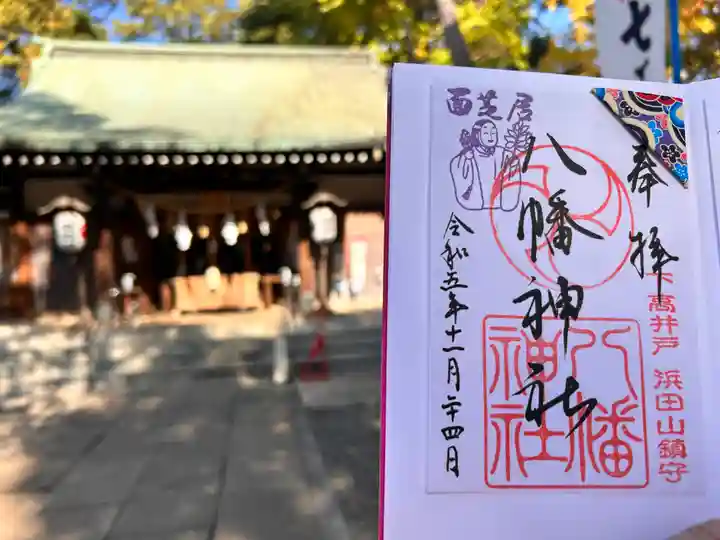 奉拝
下高井戸 浜田山鎮守
八幡神社
八幡
神社
面芝居
令和五年十一月二十四日
七